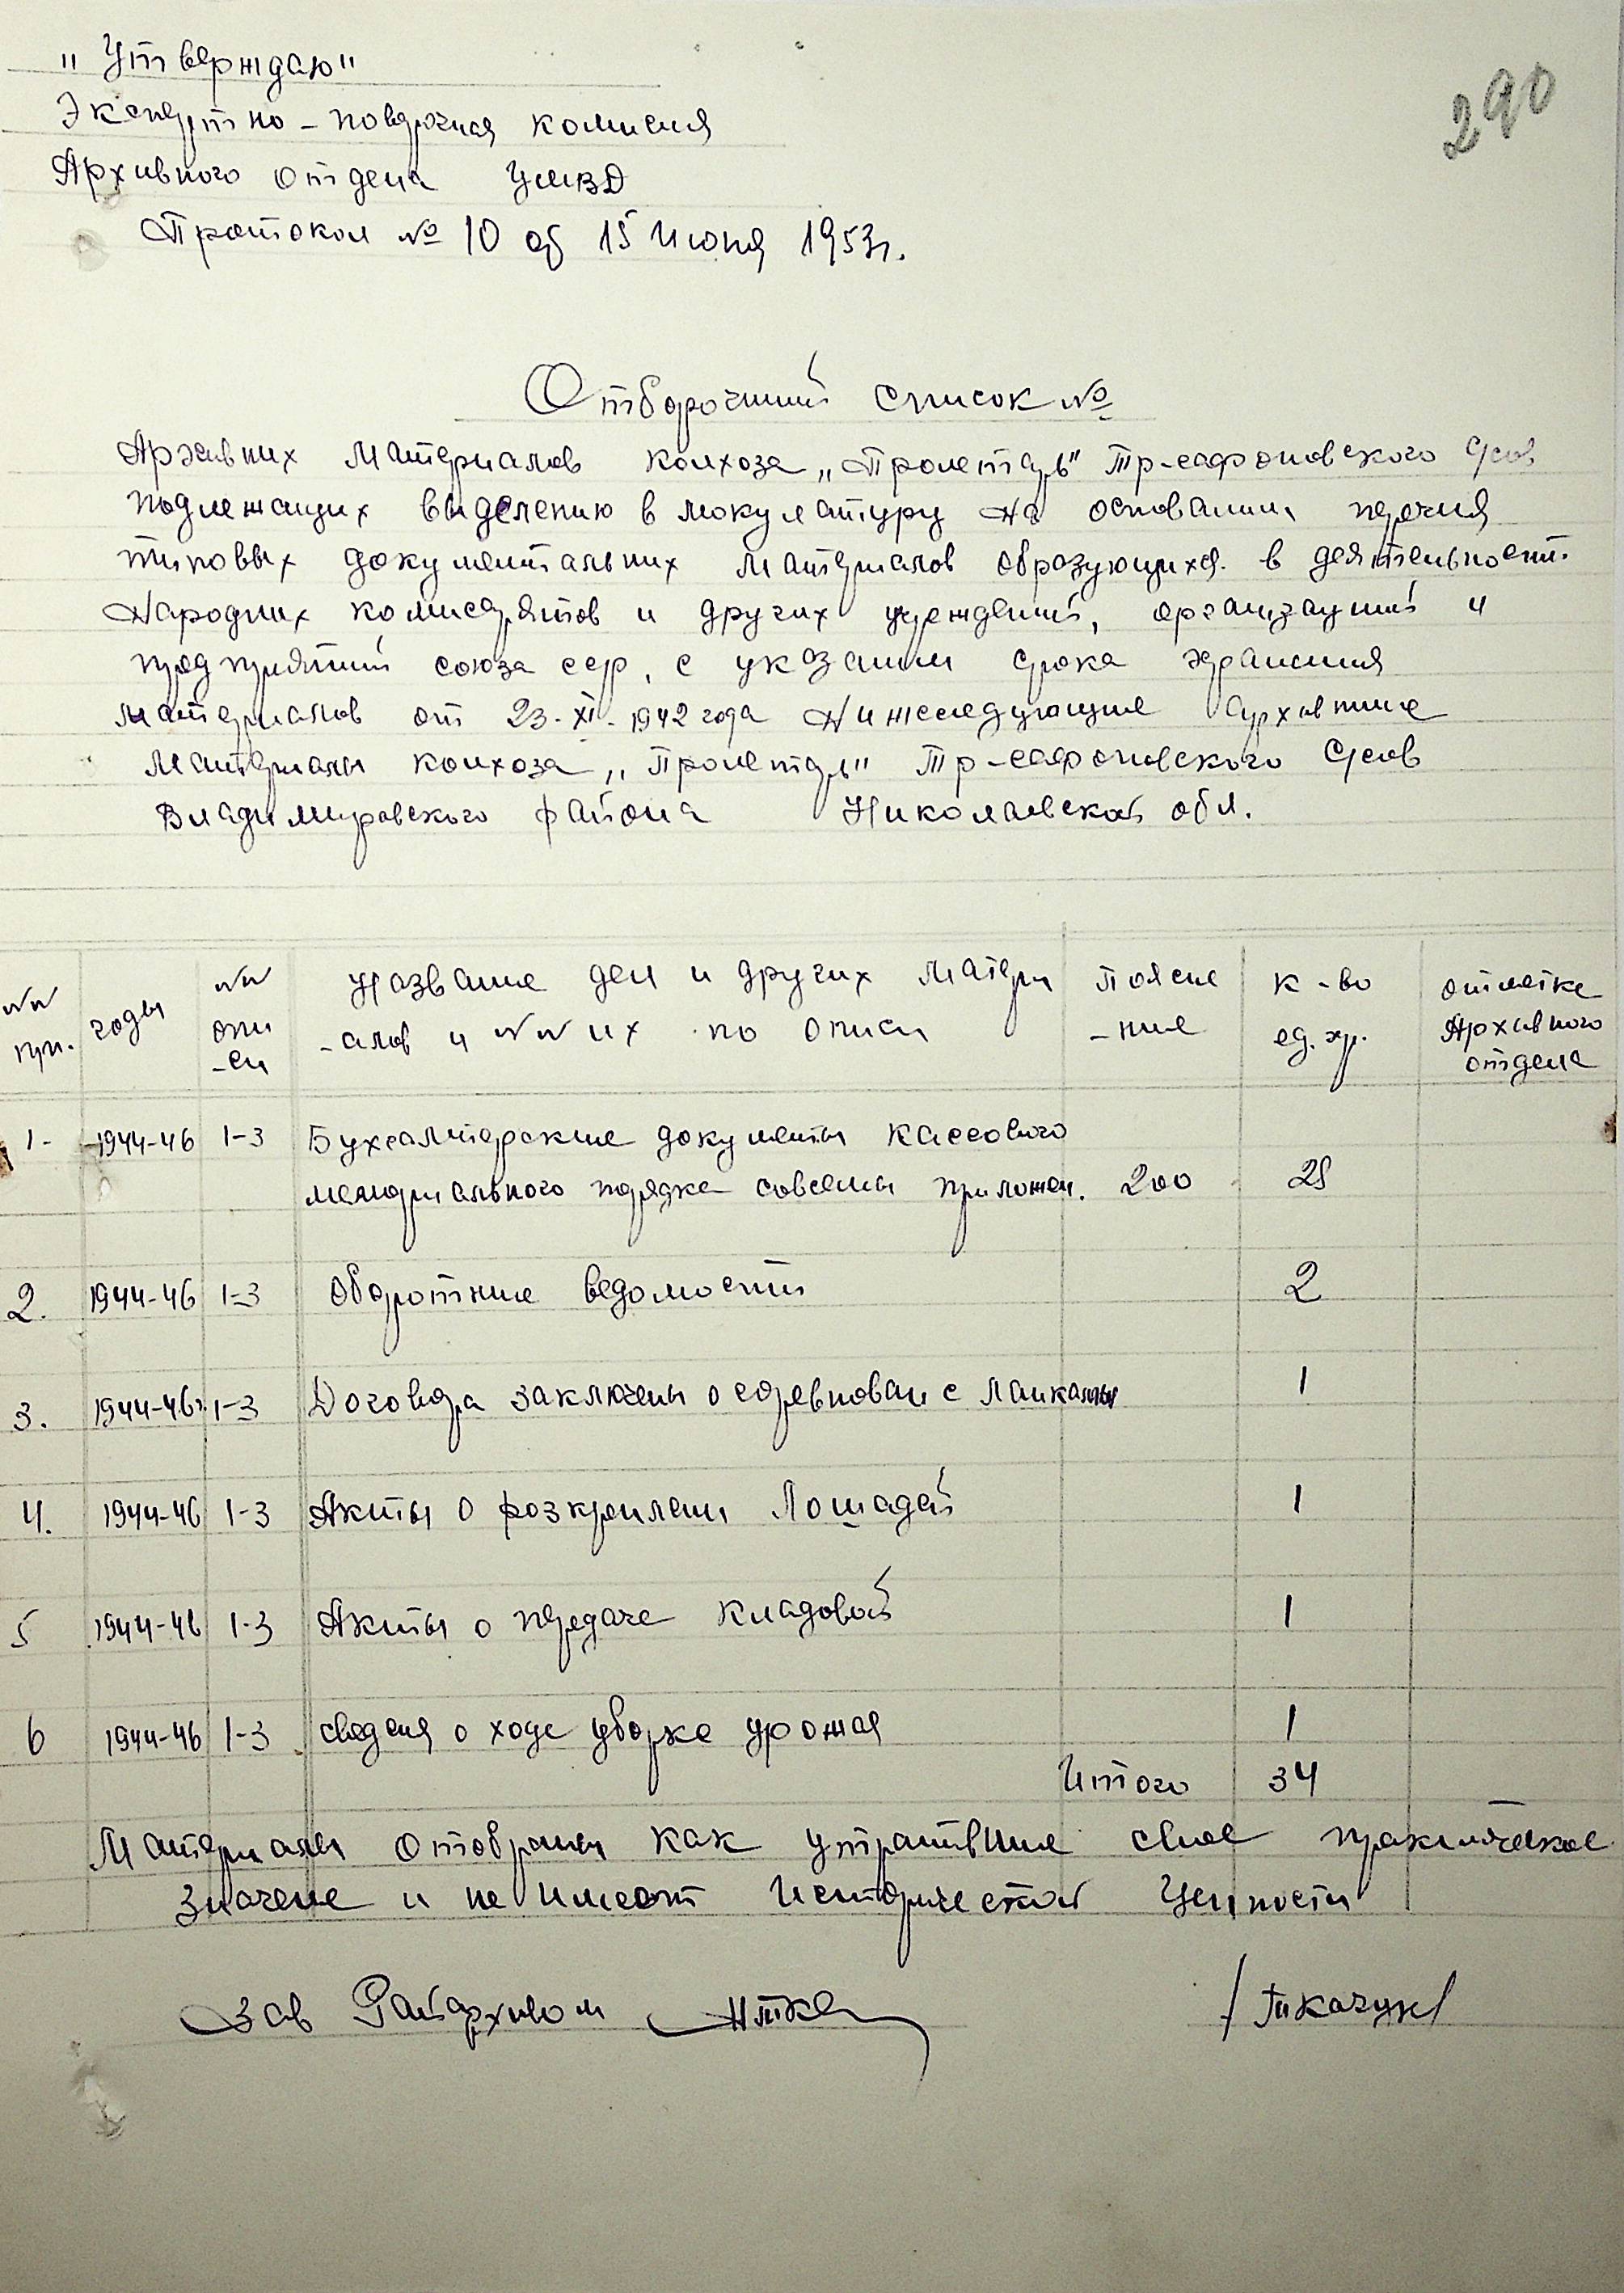 290
"Утверждаю"
Экспертно-поверочная комисия
Архивного отдела УМВД
Протокол № 10 об 15 июня 1953г.
Отборочний список №
Архивних материалов колхоза „Пролетарь" Тр-сафоновского с/сов
подлежащих выделению в мокулатуру на основании перечня
типовых документальних материалов образующихся в деятельност.
Народних комисарятов и других учреждений, организаций и
предприятий союза сср, с указанием срока хранения
материалов от 23-XI-1942 года Нижеследующие архивние
материалы колхоза „Пролетарь" Тр-сафоновского с/сов
Владимировского района Николаевской обл.
№№ пп. годы №№ опи-си Название дел и других матери-алов и №№ их по описи поясне-ние к-во ед. хр. отметка Архивного отдела
1- 1944-46 1-3 Бухгалтерские документы кассового
мемориального порядка совсемы приложен. 200 28
2. 1944-46 1-3 Оборотние ведомости 2
3. 1944-46г. 1-3 Договора заключены о соревнован с ланками 1
4. 1944-46 1-3 Акты о розкреплени Лошадей 1
5 1944-46 1-3 Акты о передаче кладовой 1
6 1944-46 1-3 сведеня о ходе уборке урожая 1
Итого 34
Материалы отобраны как утратившие свое практическое
значение и не имеют исторической ценности
Зав Райархивом /Ткачук/